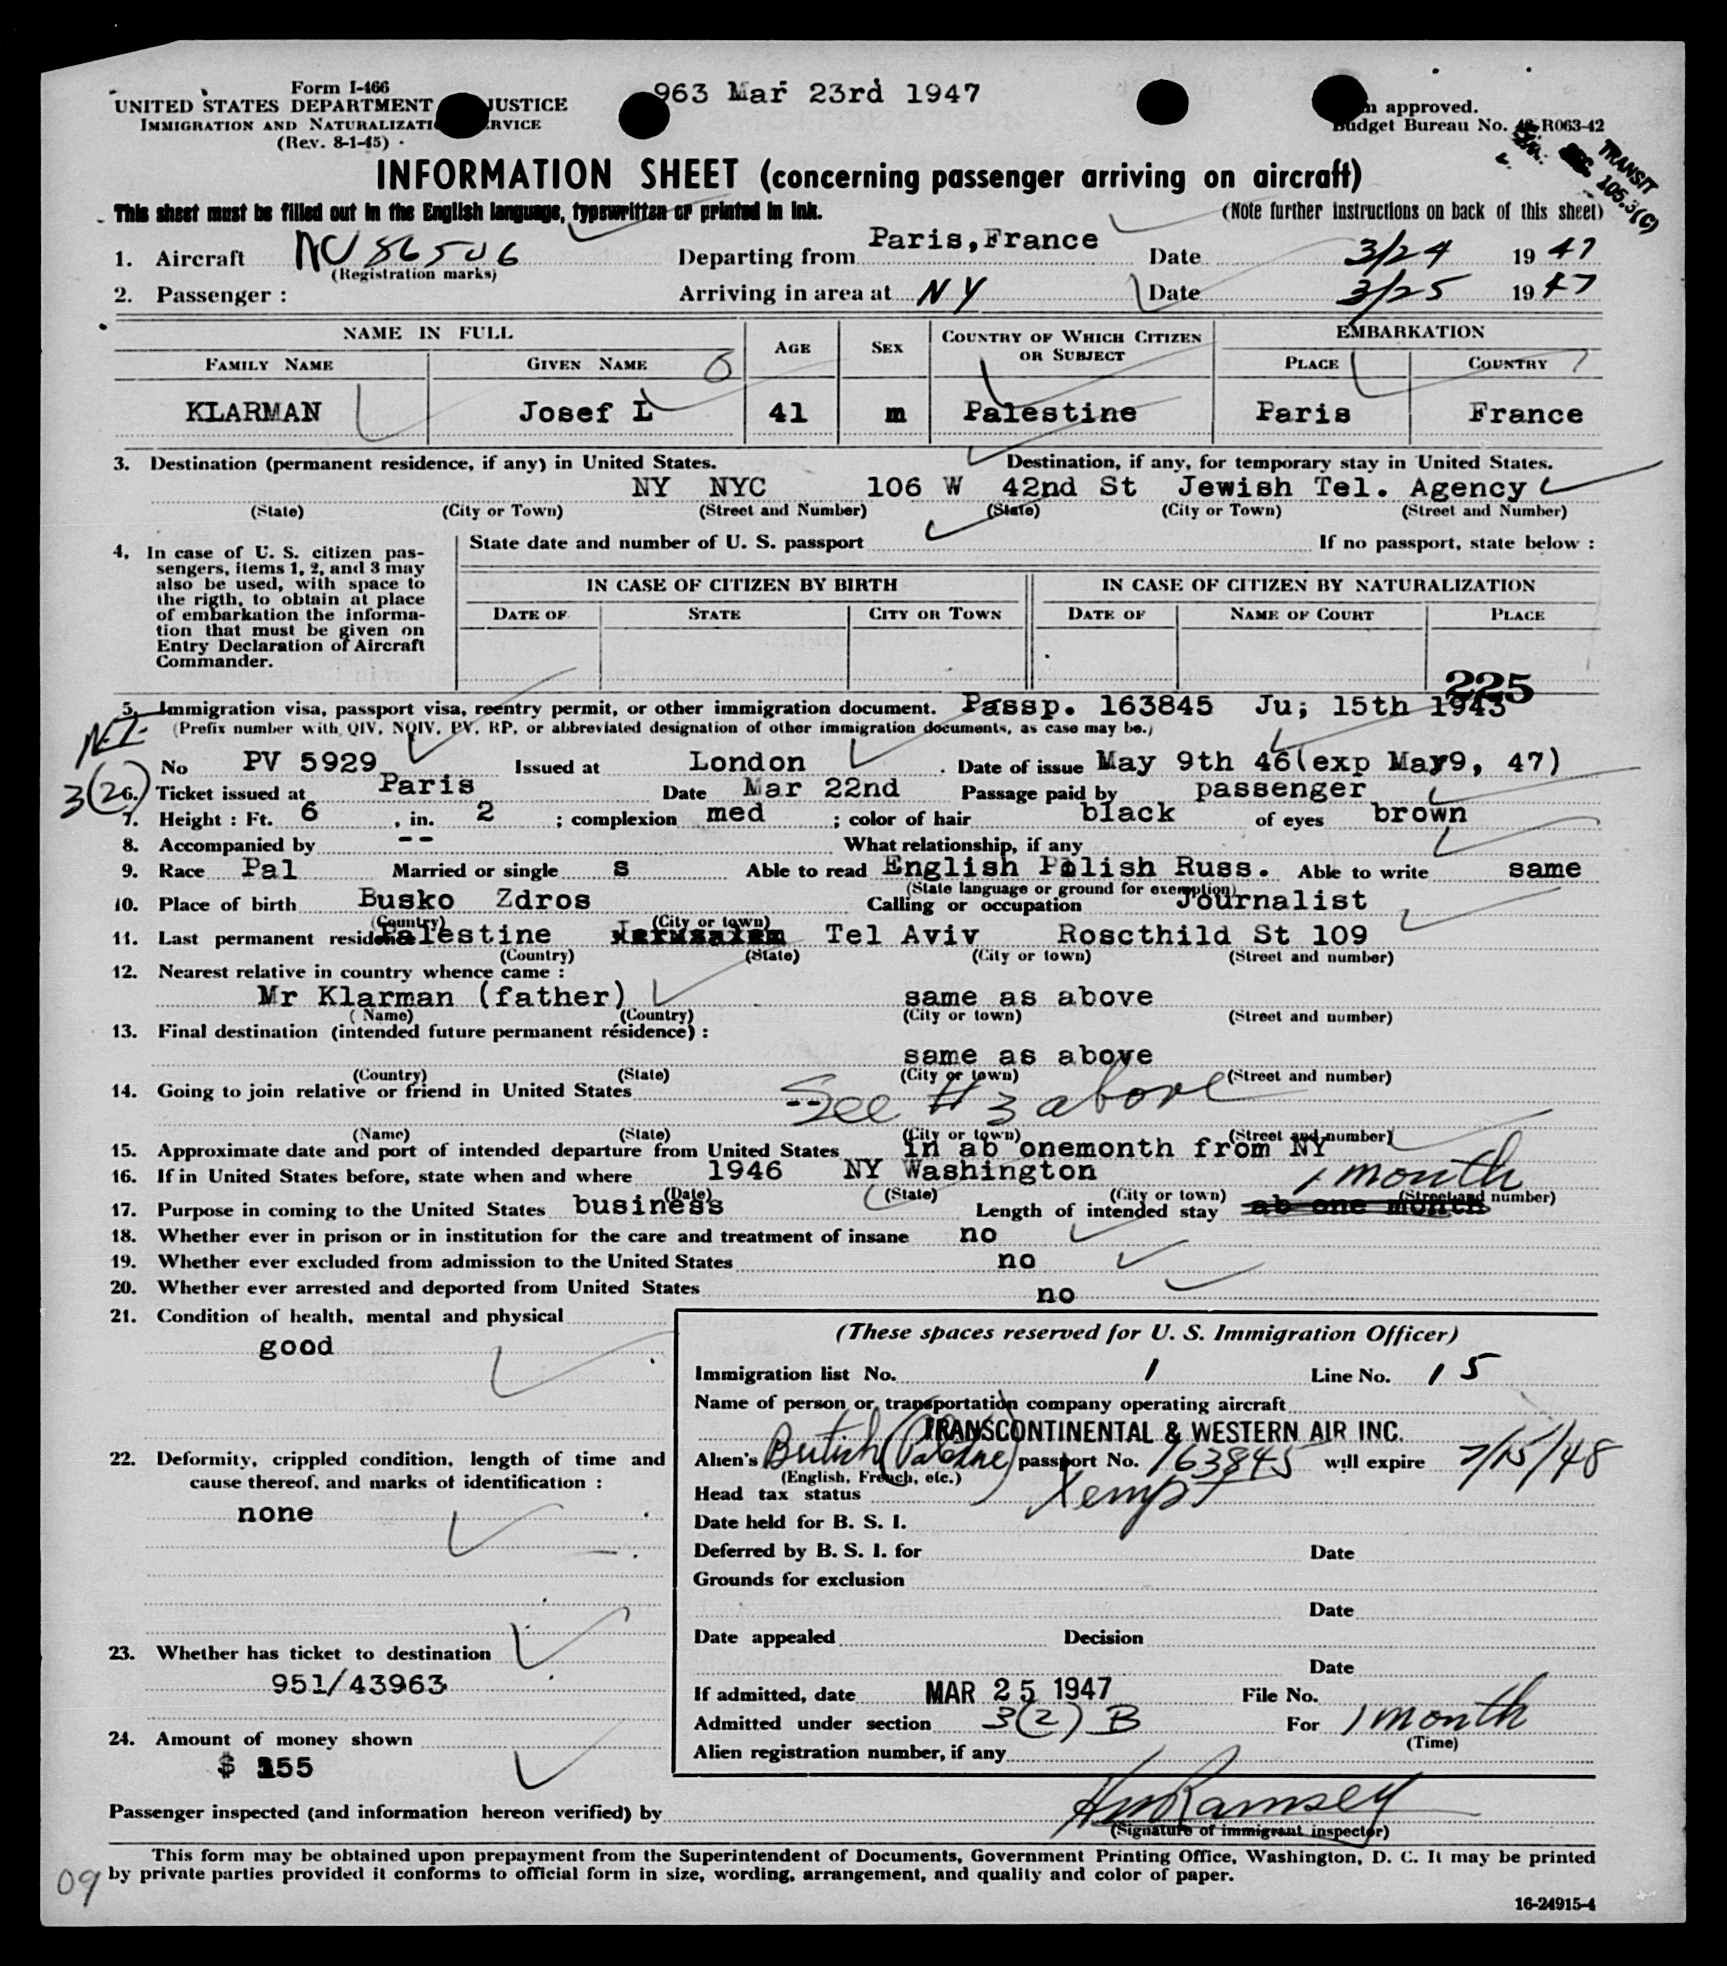 Form I-466
963 Mar 23rd 1947
UNITED STATES DEPARTMENT JUSTICE
approved.
IMMIGRATION AND NATURALIZATI RVICE
Budget Bureau No. R063-42
(Rev. 8-1-45)
TRANSIT
SEC. 105.3(C)
INFORMATION SHEET (concerning passenger arriving on aircraft)
This sheet must be filled out in the English language, typewritten or printed in ink.
(Note further instructions on back of this sheet)
1. Aircraft NC 86506 Departing from Paris,France Date 3/24 1947
(Registration marks)
2. Passenger : Arriving in area at NY Date 3/25 1947
NAME IN FULL AGE SEX COUNTRY OF WHICH CITIZEN OR SUBJECT EMBARKATION
FAMILY NAME GIVEN NAME PLACE COUNTRY
KLARMAN Josef L 41 m Palestine Paris France
3. Destination (permanent residence, if any) in United States. Destination, if any, for temporary stay in United States.
NY NYC 106 W 42nd St Jewish Tel. Agency
(State) (City or Town) (Street and Number) (State) (City or Town) (Street and Number)
4. In case of U. S. citizen pas-
sengers, items 1, 2, and 3 may
also be used, with space to
the rigth, to obtain at place
of embarkation the informa-
tion that must be given on
Entry Declaration of Aircraft
Commander.
State date and number of U. S. passport If no passport, state below :
IN CASE OF CITIZEN BY BIRTH IN CASE OF CITIZEN BY NATURALIZATION
DATE OF STATE CITY OR TOWN DATE OF NAME OF COURT PLACE
225
5. Immigration visa, passport visa, reentry permit, or other immigration document. Passp. 163845 Ju; 15th 1943
(Prefix number with QIV, NQIV, PV, RP, or abbreviated designation of other immigration documents, as case may be.)
No PV 5929 Issued at London . Date of issue May 9th 46(exp May9, 47)
3(2)
6. Ticket issued at Paris Date Mar 22nd Passage paid by passenger
7. Height : Ft. 6 , in. 2 ; complexion med ; color of hair black of eyes brown
8. Accompanied by -- What relationship, if any
9. Race Pal Married or single s Able to read English Polish Russ. Able to write same
(State language or ground for exemption)
10. Place of birth Busko Zdros Calling or occupation Journalist
(Country) (City or town)
11. Last permanent residence Palestine Jerusalem Tel Aviv Roscthild St 109
(Country) (State) (City or town) (Street and number)
12. Nearest relative in country whence came :
Mr Klarman (father) same as above
( Name) (Country) (City or town) (Street and number)
13. Final destination (intended future permanent résidence) :
same as above
(Country) (State) (City or town) (Street and number)
14. Going to join relative or friend in United States -- See # 3 above
(Name) (State) (City or town) (Street and number)
15. Approximate date and port of intended departure from United States in ab onemonth from NY
16. If in United States before, state when and where 1946 NY Washington
(Date) (State) (City or town) (Street and number)
1 month
17. Purpose in coming to the United States business Length of intended stay ab one month
18. Whether ever in prison or in institution for the care and treatment of insane no
19. Whether ever excluded from admission to the United States no
20. Whether ever arrested and deported from United States no
21. Condition of health, mental and physical
good
22. Deformity, crippled condition, length of time and
cause thereof, and marks of identification :
none
23. Whether has ticket to destination
951/43963
24. Amount of money shown
$ 155
(These spaces reserved for U. S. Immigration Officer)
Immigration list No. 1 Line No. 15
Name of person or transportation company operating aircraft
TRANSCONTINENTAL & WESTERN AIR INC.
Alien's British (Palestine) passport No. 163845 will expire 7/15/48
(English, French, etc.)
Head tax status Xempt
Date held for B. S. I.
Deferred by B. S. I. for Date
Grounds for exclusion
Date
Date appealed Decision
Date
If admitted, date MAR 25 1947 File No.
Admitted under section 3(2) B For 1 month
(Time)
Alien registration number, if any
Passenger inspected (and information hereon verified) by Ramsey
(Signature of immigrant inspector)
This form may be obtained upon prepayment from the Superintendent of Documents, Government Printing Office, Washington, D. C. It may be printed
by private parties provided it conforms to official form in size, wording, arrangement, and quality and color of paper.
09
16-24915-4